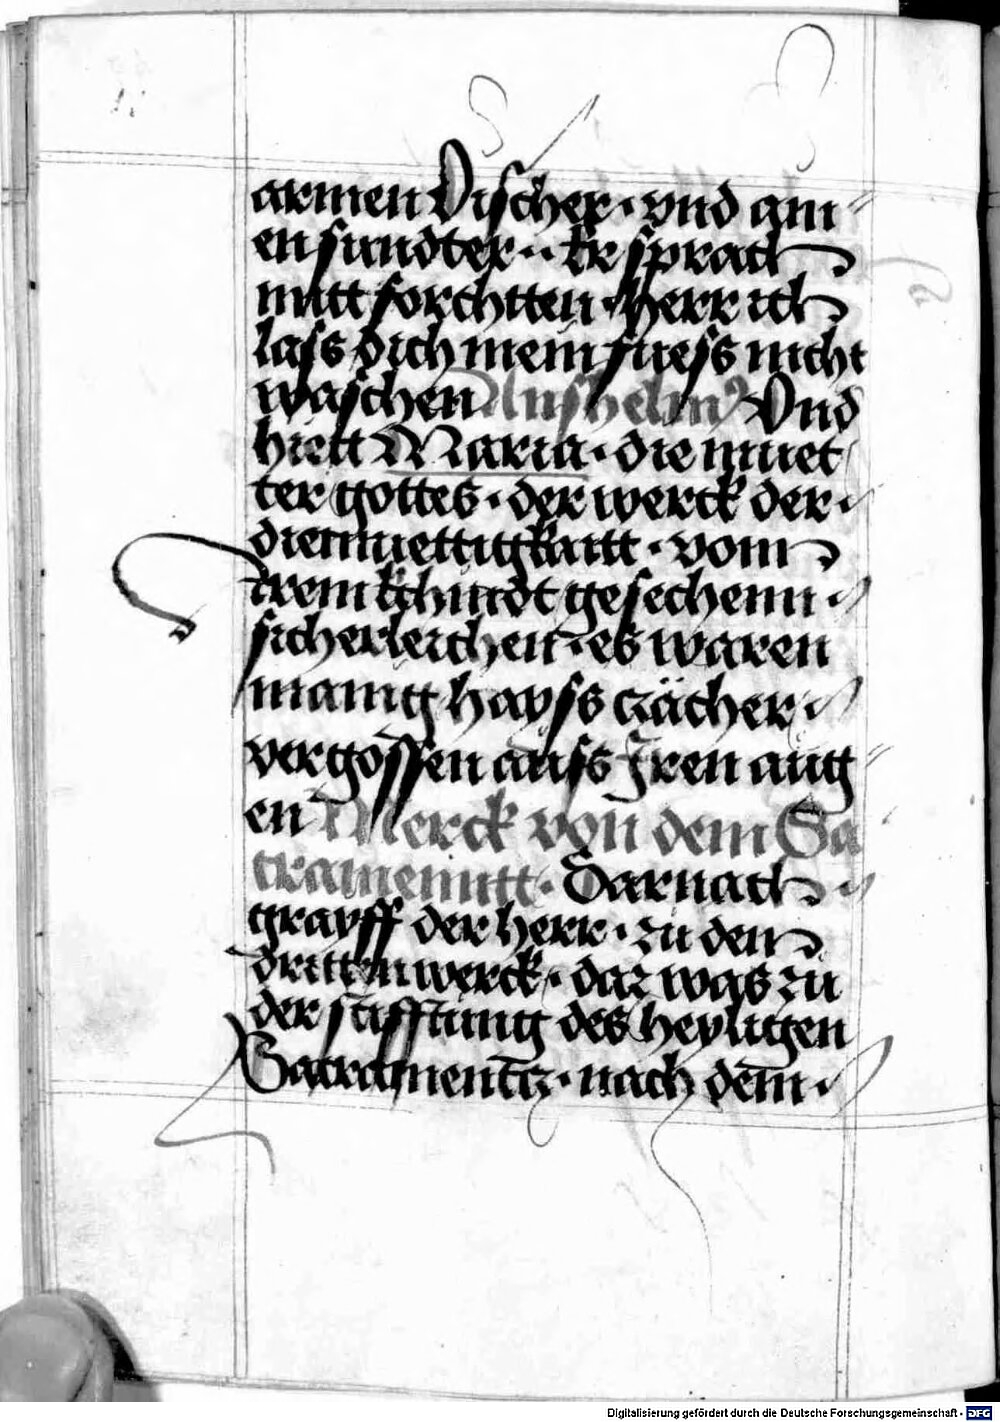 armen Vischer · vnd ain
en sundter · · Er sprach
mitt forchtten · Herr ich
lass dich mein fuess nicht
waschen Anshelm9 Vnd
hiett Maria · die muet
ter gottes · der werck der ·
diemuettigkaitt · vom
irem khindt gesechenn ·
sicherleichen · es waren
manig hayss zächer ·
vergossen auss Jren aug
en Merck von dem Sa
cramenntt · Darnach
grayff der herr · zu den
dritten werck · daz was zu
der stifftung des heyligen
Sacramentz · nach dem ·
Digitalisierung gefördert durch die Deutsche Forschungsgemeinschaft - DFG